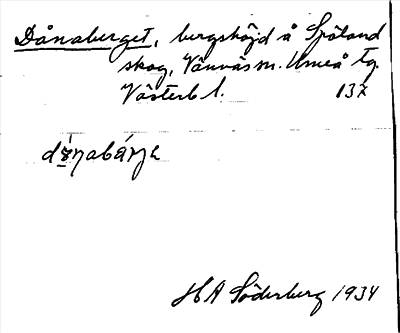 Dånaberget, bergshöjd å Sjöland
skog, Vännäs m. Umeå tg.
Västerb l. 137
HA Söderberg 1934